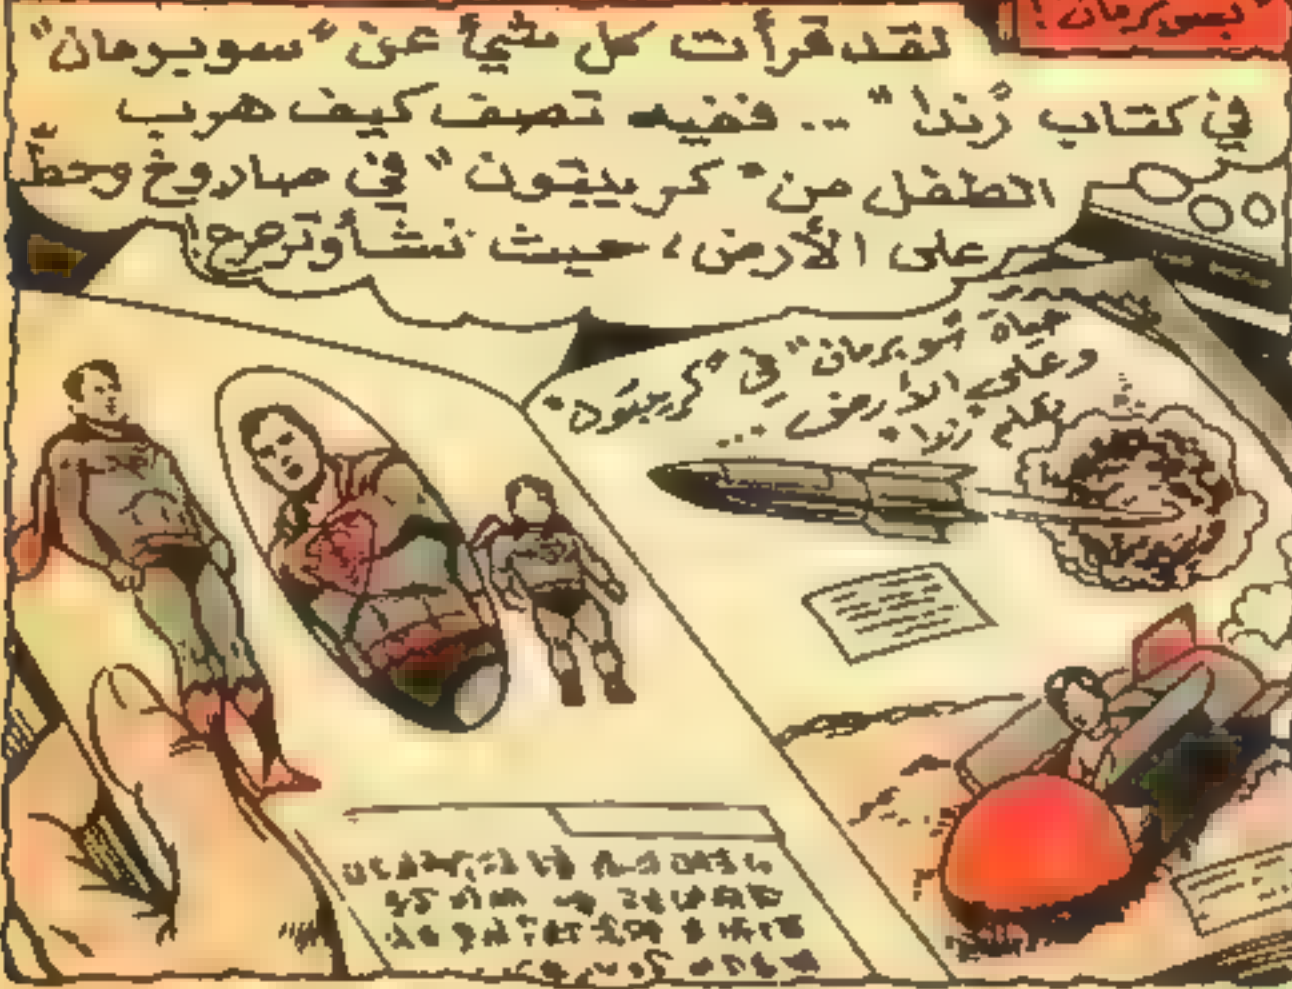 "بسوبرمان!
لقد قرأت كل شيئ عن "سوبرمان"
في كتاب رندا" ... ففيه تصف كيف هرب
الطفل من "كريبتون" في صاروخ وحطّ
على الأرض، حيث نشأ وترعرع!
حياة سوبرمان" في "كريبتون"
وعلى الأرض ...
بقلم "رندا"